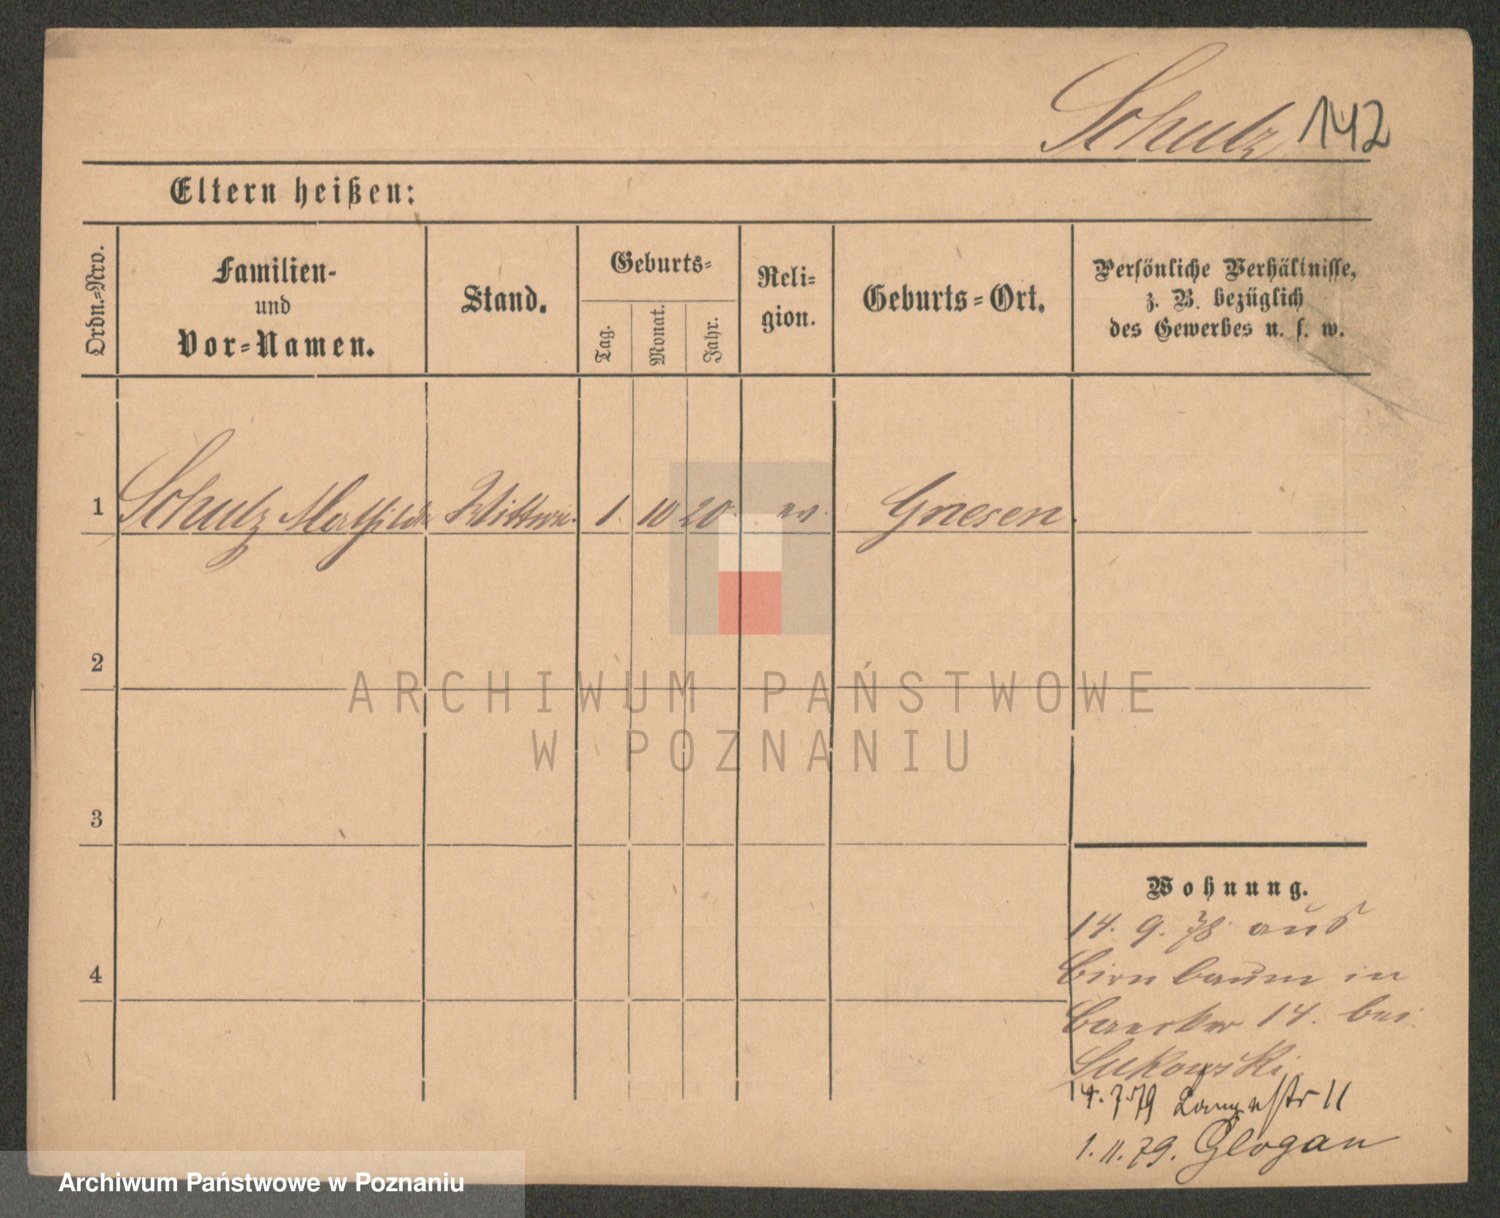 Schulz 142
Eltern heißen:
Ordn.-Nro.
Familien-
und
Vor-Namen.
Stand.
Geburts-
Tag.
Monat.
Jahr.
Reli-
gion.
Geburts-Ort.
Persönliche Verhältnisse,
z. B. bezüglich
des Gewerbes u. s. w.
1 Schulz Mathilde Wittwe 1 10 20 ev. Gnesen
2
3
4
Wohnung.
14. 9. 78. aus
Birnbaum in
Baecker 14. bei
Lukowski
4. 7. 79 Langestr 11
1. 11. 79. Glogau
ARCHIWUM PAŃSTWOWE
W POZNANIU
Archiwum Państwowe w Poznaniu